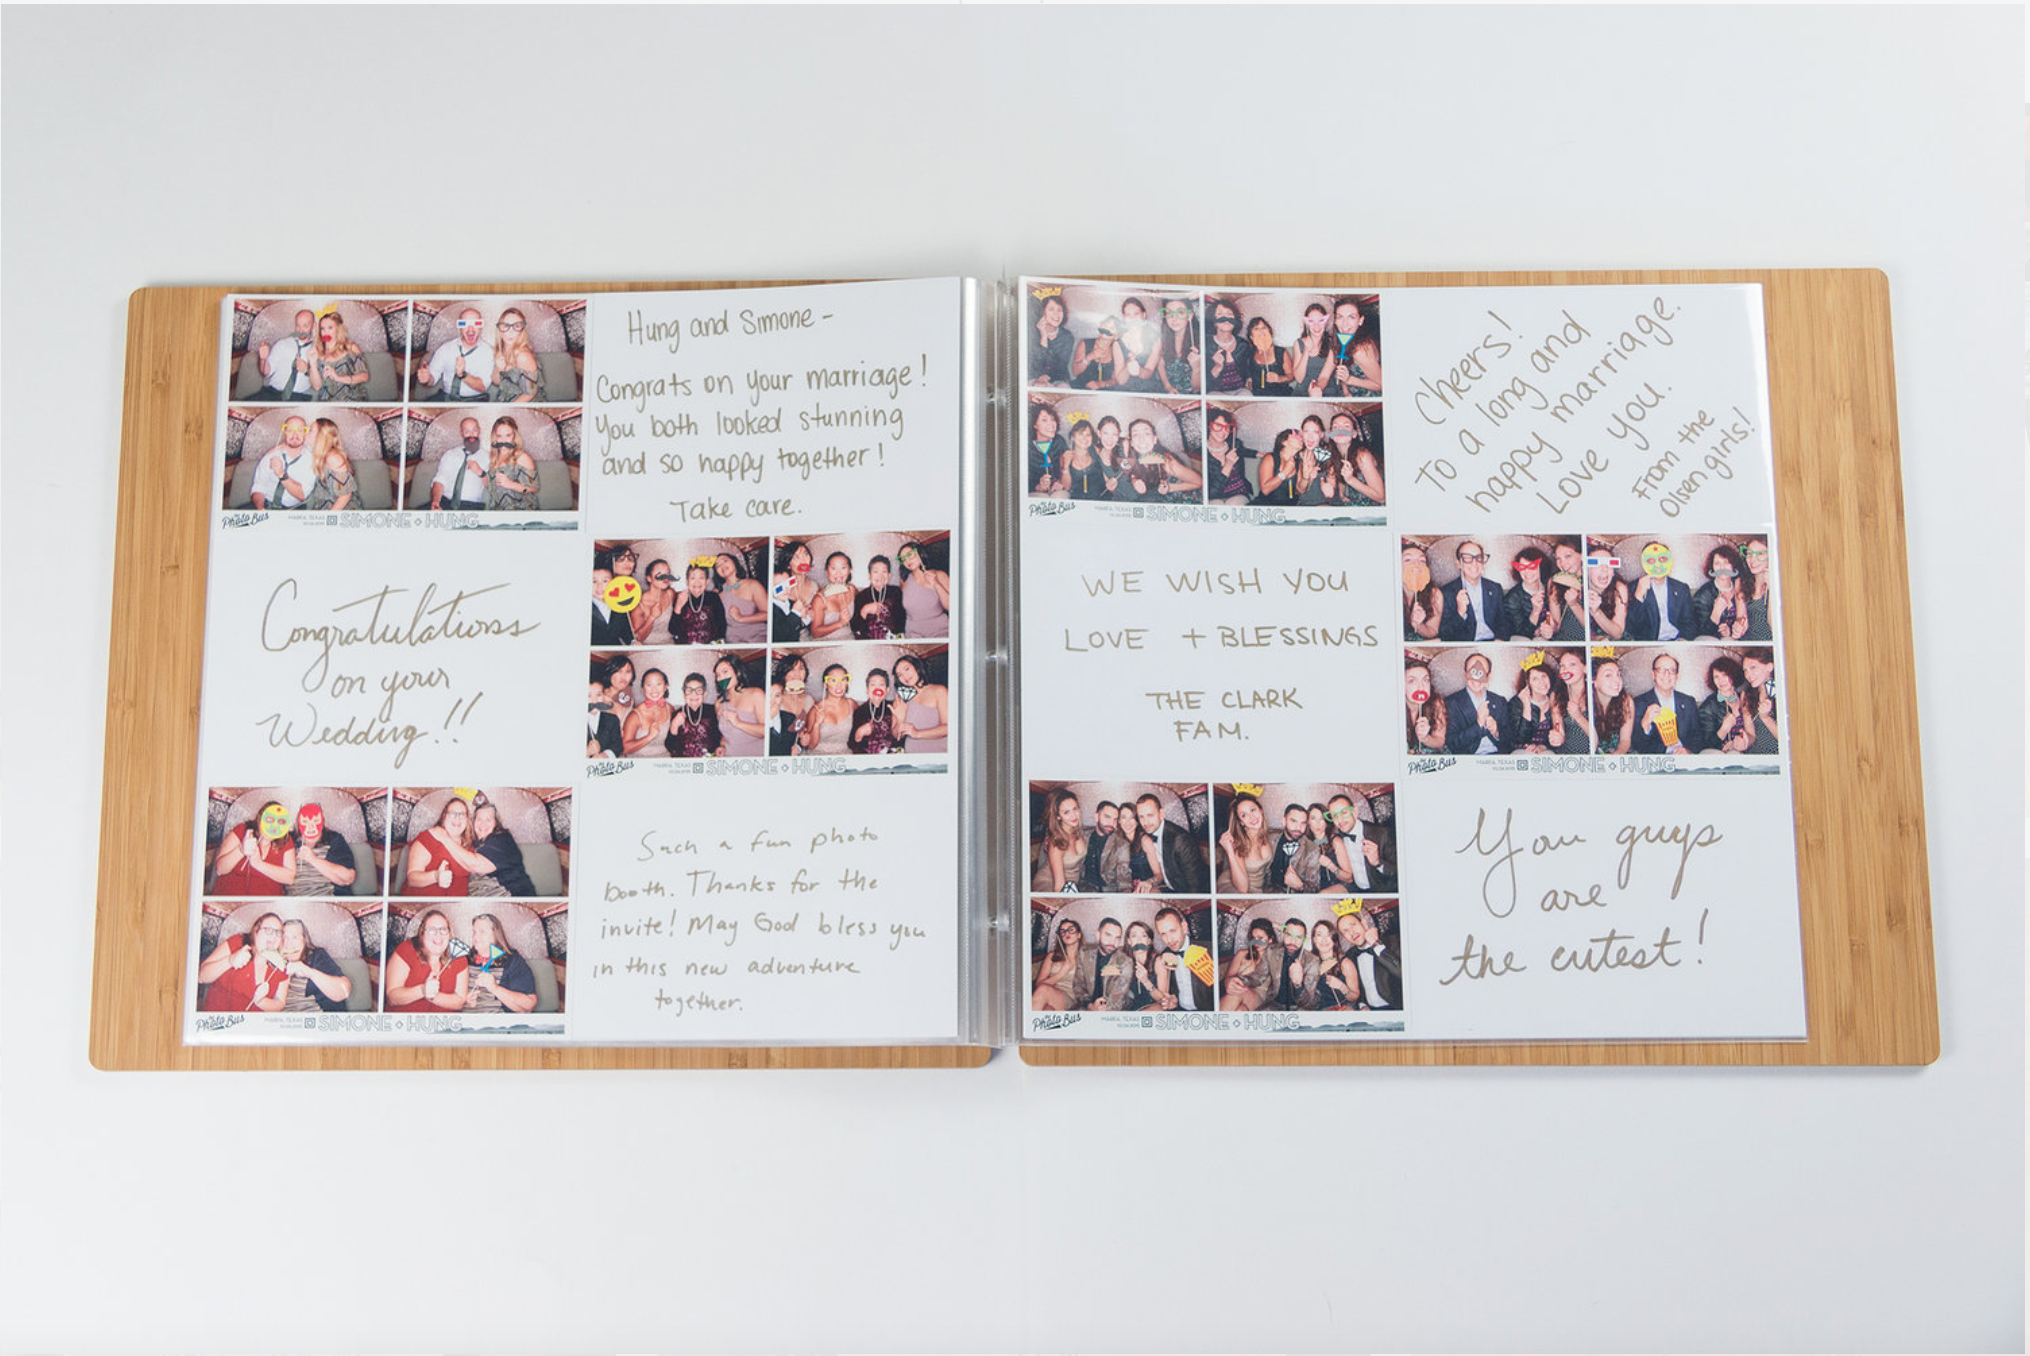 Hung and Simone -
Congrats on your marriage!
You both looked stunning
and so happy together!
Take care.
Photo Bus
MARFA, TEXAS
SIMONE + HUNG
Congratulations
on your
Wedding!!
Photo Bus
MARFA, TEXAS
SIMONE + HUNG
Such a fun photo
booth. Thanks for the
invite! May God bless you
in this new adventure
together.
Photo Bus
MARFA, TEXAS
SIMONE + HUNG
Cheers!
To a long and
happy marriage.
Love you.
From the
Olsen girls!
Photo Bus
MARFA, TEXAS
SIMONE + HUNG
WE WISH YOU
LOVE + BLESSINGS
THE CLARK
FAM.
Photo Bus
MARFA, TEXAS
SIMONE + HUNG
You guys
are
the cutest!
Photo Bus
MARFA, TEXAS
SIMONE + HUNG